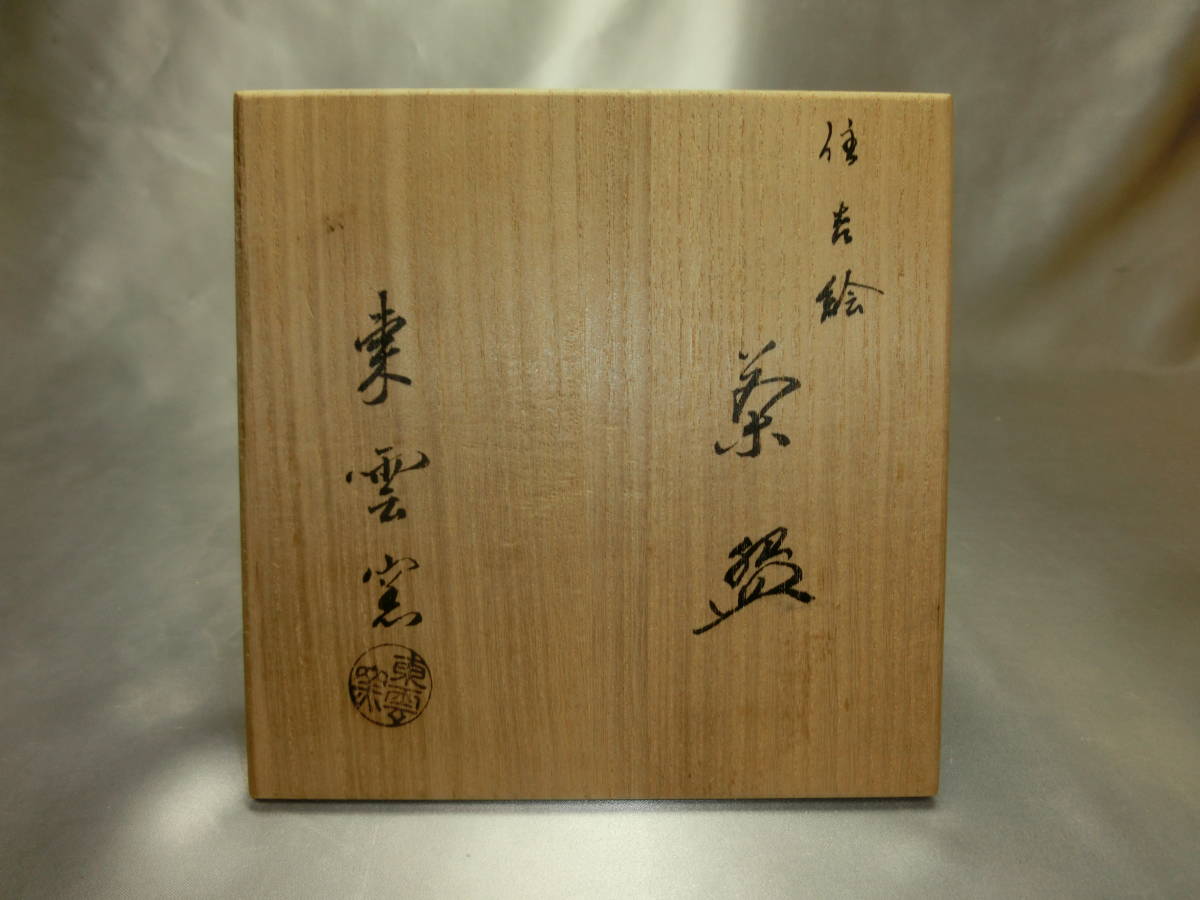 住吉絵
茶盌
東雲窯
東雲